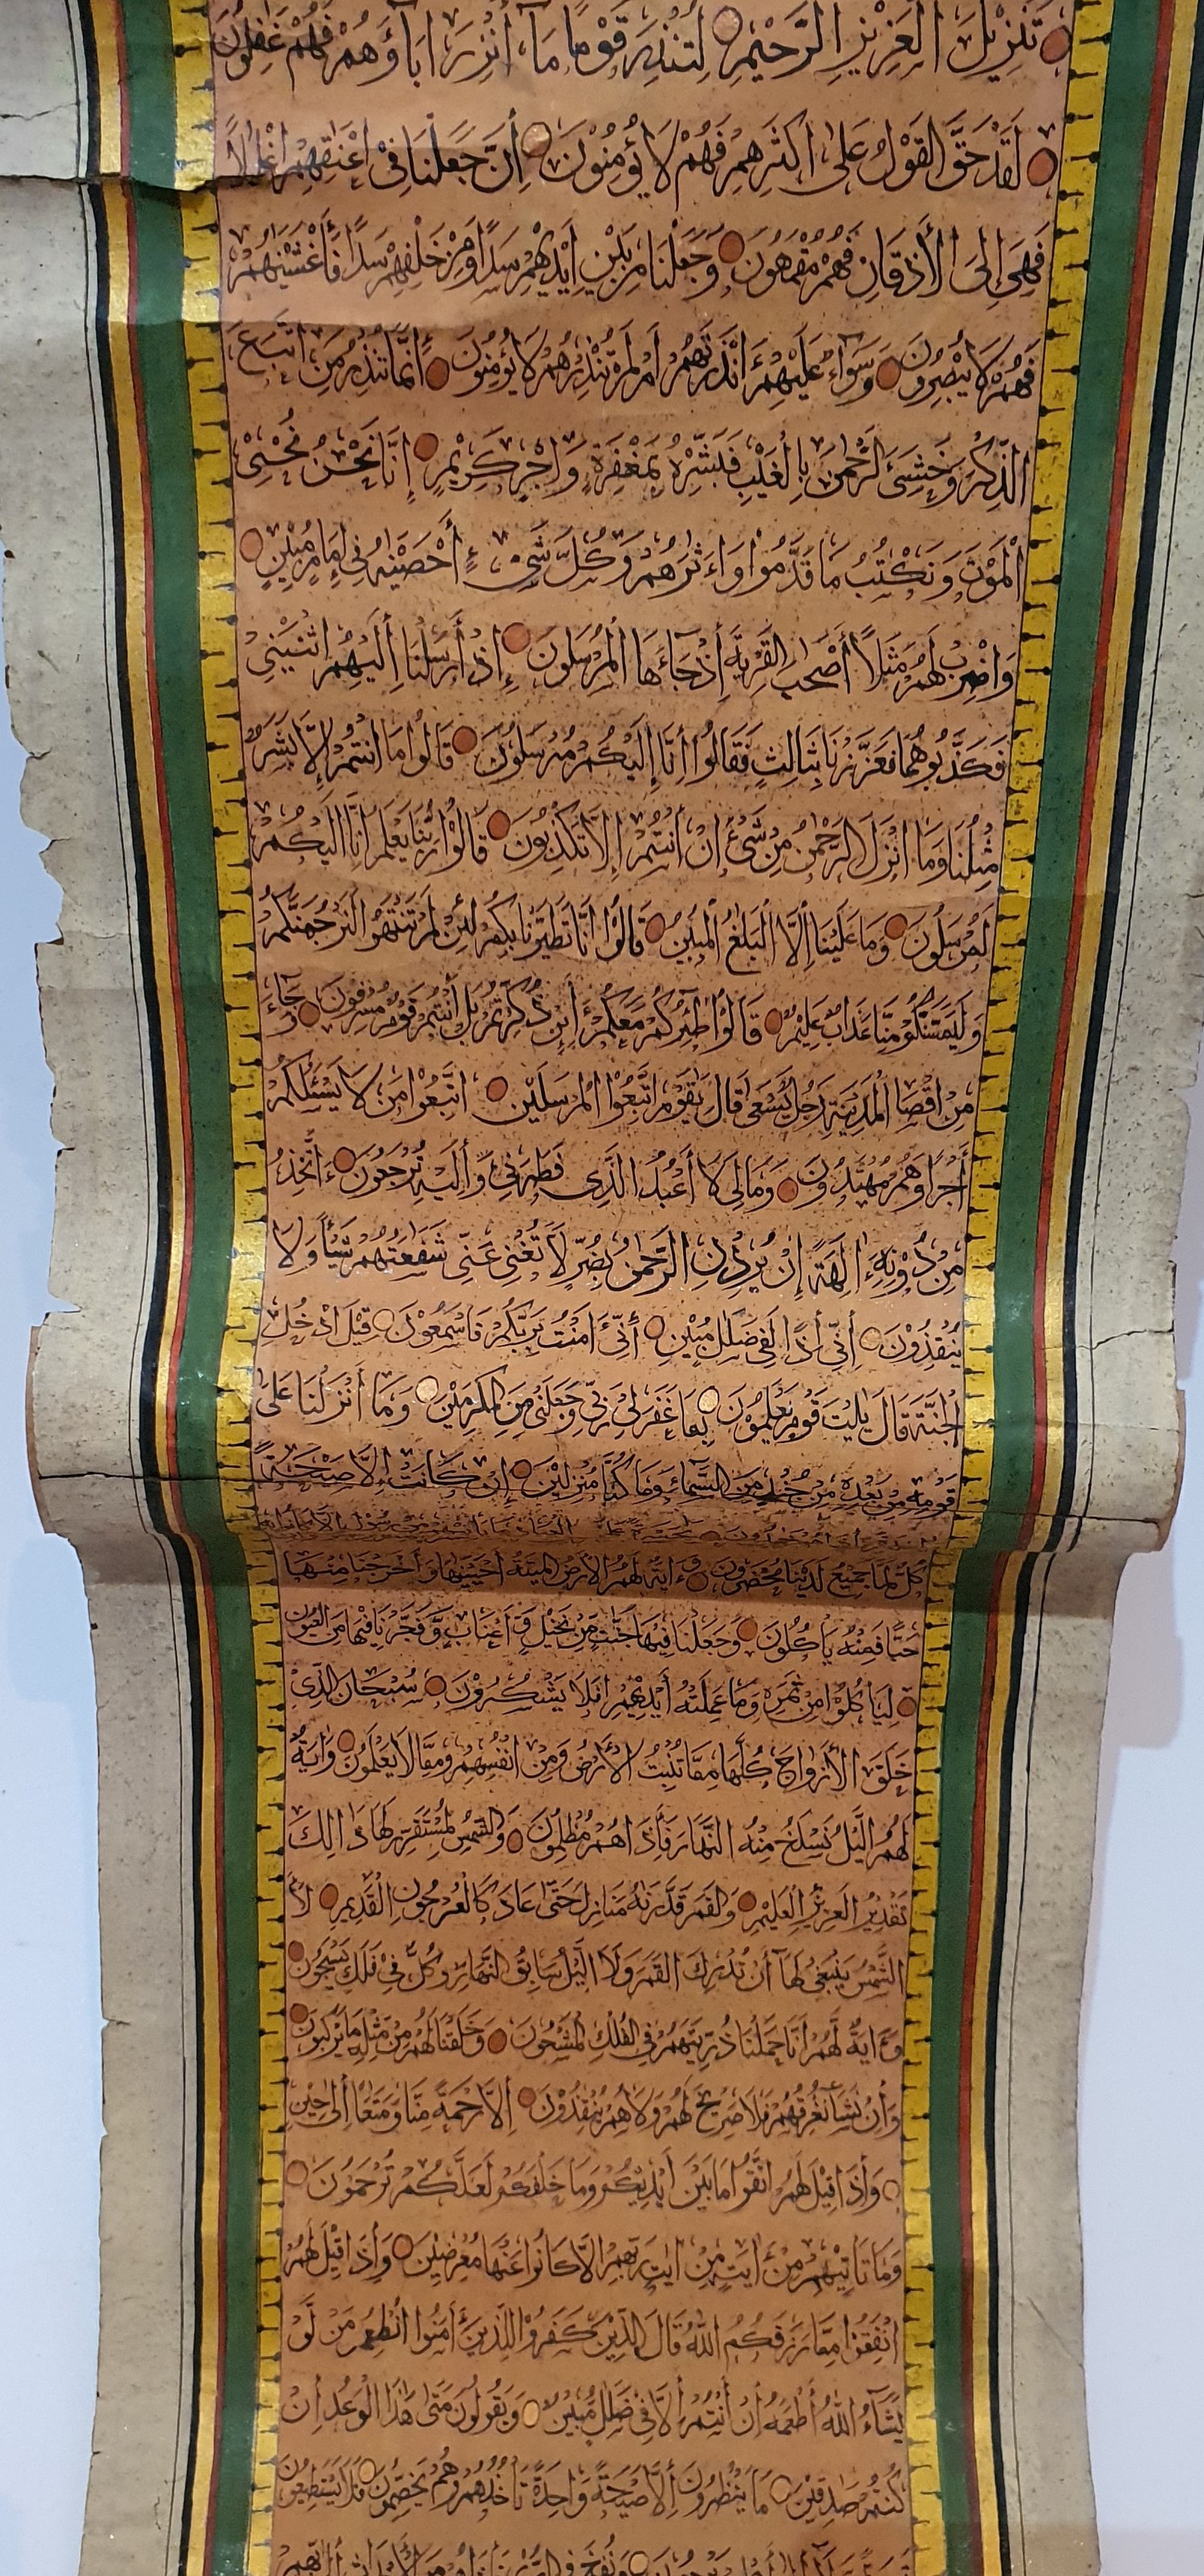 تَنْزِيلَ الْعَزِيزِ الرَّحِيمِ لِتُنْذِرَ قَوْمًا مَا أُنْذِرَ آبَاؤُهُمْ فَهُمْ غَفِلُونَ
لَقَدْ حَقَّ الْقَوْلُ عَلَى أَكْثَرِهِمْ فَهُمْ لَا يُؤمِنُونَ أِنَّ جَعَلْنَا فِي أَعْنَقِهِمْ أَغْلَلًا
فَهِيَ إِلَى الْأَذقَانِ فَهُمْ مُقْمَحُونَ وَجَعَلْنَا مِنْ بَيْنِ أَيْدِيهِمْ سَدًا وَمِنْ خَلْفِهِمْ سَدًا فَأَغْشَيْنَهُمْ
فَهُمْ لَا يُبْصِرُونَ وَسَوَآءٌ عَلَيْهِمْ ءَأَنْذَرْتَهُمْ أَمْ لَمْ تُنْذِرْهُمْ لَا يُؤْمِنُونَ إِنَّمَا تُنْذِرُ مَنِ اتَّبَعَ
الذِّكْرَ وَخَشِيَ الرَّحْمنَ بِالْغَيْبِ فَبَشِّرْهُ بِمَغْفِرَةٍ وَأَجْرٍ كَرِيْمٍ إِنَّا نَحْنُ نُحْيِ
الْمَوْتَى وَنَكْتُبُ مَا قَدَّمُوا وَءَاثَرَهُمْ وَكُلَّ شَيْءٍ أَحْصَيْنهُ فِي إِمَامٍ مُبِيْنٍ
وَاضْرِبْ لَهُمْ مَثَلًا أَصْحَبَ الْقَرْيَةِ أِذْ جَآءَهَا الْمُرْسَلُونَ إِذْ أَرْسَلْنَا أِلَيْهِمُ اثْنَيْنِ
فَكَذَّبُوهُمَا فَعَزَّزْنَا بِثَالِثٍ فَقَالُوا أِنَّا إِلَيْكُمْ مُرْسَلُونَ قَالُوا مَا أَنْتُمْ إِلَّا بَشَرٌ
مِثْلُنَا وَمَا أَنْزَلَ الرَّحْمنُ مِنْ شَيْءٍ إِنْ أَنْتُمْ إِلَّا تَكْذِبُونَ قَالُوْا رَبُّنَا يَعْلَمُ أِنَّا أِلَيْكُمْ
لَمُرْسَلُونَ وَمَا عَلَيْنَا اِلَّا الْبَلغُ الْمُبِينُ قَالُوْا أِنَّا تَطَيَّرْنَا بِكُمْ لَئِنْ لَمْ تَنْتَهُوا لَنَرْجُمَنَّكُمْ
وَلَيَمَسَّنَّكُمْ مِنَّا عَذَابٌ عَلِيْمٌ قَالُوا طَئِرُكُمْ مَعَكُمْ أَئِنْ ذُكِّرْتُمْ بَلْ أَنْتُمْ قَوْمٌ مُسْرِفُونَ وَجَاءَ
مِنْ اَقْصَا الْمَدِيْنَةِ رَجُلٌ يَسْعَى قَالَ يَقَوْمِ اتَّبِعُوْا الْمُرْسَلَيْنَ اتَّبِعُوْا مَنْ لَا يَسْئَلُكُمْ
أَجْرًا وَهُمْ مُهْتَدُونَ وَمَا لِيَ لَا أَعْبُدُ الَّذِى فَطَرَنِي وَأِلَيْهِ تُرْجَعُونَ ءَاَتَّخِذُ
مِنْ دُوْنِهِ ءَالِهَةً إِنْ يُرِدْنِ الرَّحْمنُ بِضُرٍّ لَا تُغْنِ عَنِّي شَفَعَتُهُمْ شَيْأً وَلَا
يُنْقِذُوْنَ أِنِّي أِذًا لَفِي ضَلَلٍ مُبِيْنٍ أِنِّي ءَامَنْتُ بِرَبِّكُمْ فَاسْمَعُوْنَ قِيْلَ ادْخُلِ
الْجَنَّةَ قَالَ يلَيْتَ قَوْمِي يَعْلَمُوْنَ بِمَا غَفَرَلِيْ رَبِّي وَجَعَلَنِي مِنَ الْمُكْرَمِيْنَ وَمَا أَنْزَلْنَا عَلَى
قَوْمِهِ مِنْ بَعْدِهِ مِنْ جُنْدٍ مِنَ السَّمَاءِ وَمَا كُنَّا مُنْزِلِيْنَ إِنْ كَانَتْ إِلَّا صَيْحَةً
كُلٌّ لَمَّا جَمِيْعٌ لَدَيْنَا مُحْضَرُونَ وَءَايَةٌ لَهُمُ الْاَرْضُ الْمَيْتَةُ أَحْيَيْنهَا وَأَخْرَجْنَا مِنْهَا
حَبًّا فَمِنْهُ يَاكُلُونَ وَجَعَلْنَا فِيْهَا جَنّتٍ مِنْ نَخِيْلٍ وَأَعْنَابٍ وَفَجَّرْنَا فِيْهَا مِنَ الْعُيُونِ
لِيَأكُلُوْا مِنْ ثَمَرِهِ وَمَا عَمِلَتْهُ أَيْدِيْهِمْ اَفَلَا يَشْكُرُوْنَ سُبْحَانَ الَّذِيْ
خَلَقَ الْأَزْوَاجَ كُلَّهَا مِمَّا تُنْبِتُ الْأَرْضُ وَمِنْ اَنْفُسِهِمْ وَمِمَّا لَا يَعْلَمُوْنَ وَايَةٌ
لَهُمُ الَّيْلُ نَسْلَخُ مِنْهُ النَّهَارَ فَأِذَاهُمْ مُظْلِمُوْنَ وَالشَّمْسُ لِمُسْتَقَرٍّ لَهَا ذَالِكَ
تَقْدِيْرُ الْعَزِيْزِ الْعَلِيْمِ وَالْقَمَرَ قَدَّرْنهُ مَنَازِلَ حَتّى عَادَ كَالْعُرْجُوْنِ الْقَدِيْمِ لَا
الشَّمْسُ يَنْبَغِي لَهَآ أَنْ تُدْرِكَ الْقَمَرَ وَلَا الَّيْلُ سَابِقُ النَّهَارِ وَكُلٌّ فِيْ فَلَكٍ يَسْبَحُونَ
وَءَايَةٌ لَهُمْ أَنَّا حَمَلْنَا ذُرِّيَّتَهُمْ فِي الْفُلْكِ الْمَشْحُوْنِ وَخَلَقْنَا لَهُمْ مِنْ مِثْلِهِ مَا يَرْكَبُونَ
وَأِنْ نَشَأْ نُغْرِقْهُمْ فَلَا صَرِيْخَ لَهُمْ وَلَا هُمْ يُنْقَذُوْنَ أِلَّا رَحْمَةً مِنَّا وَمَتَعًا أِلَى حِيْنٍ
وَأِذَا قِيْلَ لَهُمُ اتَّقُوا مَا بَيْنَ أَيْدِيْكُمْ وَمَا خَلْفَكُمْ لَعَلَّكُمْ تُرْحَمُوْنَ
وَمَا تَاتِيْهِمْ مِنْ ءَايَتٍ مِنْ ءَايتِ رَبِّهِمْ اِلَّا كَانُوْا عَنْهَا مُعْرِضِيْنَ وَأِذَا قِيْلَ لَهُمْ
اَنْفِقُوْا مِمَّا رَزَقَكُمُ اللّهُ قَالَ الَّذِيْنَ كَفَرُوْا لِلَّذِيْنَ ءَامَنُوا اَنُطْعِمُ مَنْ لَوْ
يَشَاءُ اللّهُ أَطْعَمَهُ اِنْ أَنْتُمْ أِلَّا فِي ضَللٍ مُبِيْنٍ وَيَقُوْلُوْنَ مَتَى هَذَا الْوَعْدُ اِنْ
كُنْتُمْ صَدِقِيْنَ مَا يَنْظُرُوْنَ أِلَّا صَيْحَةً وَاحِدَةً تَأخُذُهُمْ وَهُمْ يَخِصِّمُوْنَ فَلَا يَسْتَطِيْعُوْنَ